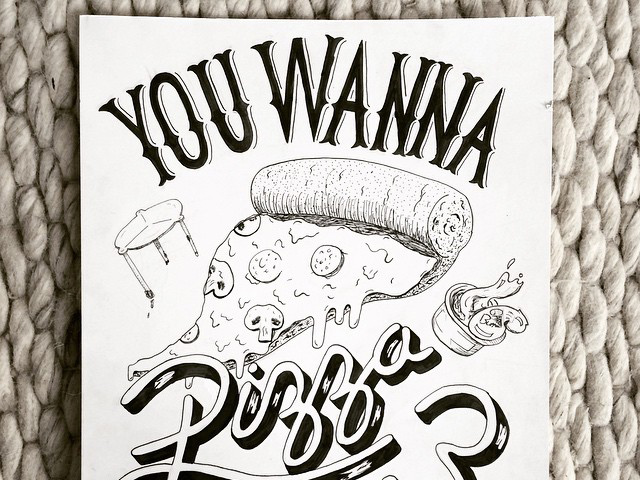 YOU WANNA
Pizza
?